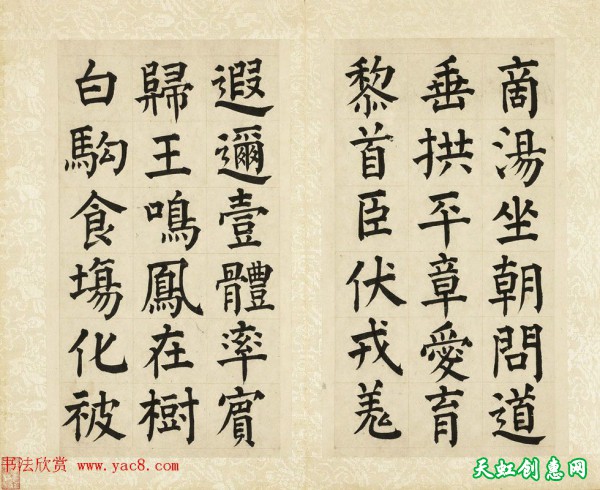 商湯坐朝問道
垂拱平章愛育
黎首臣伏戎羌
遐邇壹體率賓
歸王鳴鳳在樹
白駒食塲化被
书法欣赏 www.yac8.com
天虹创惠网